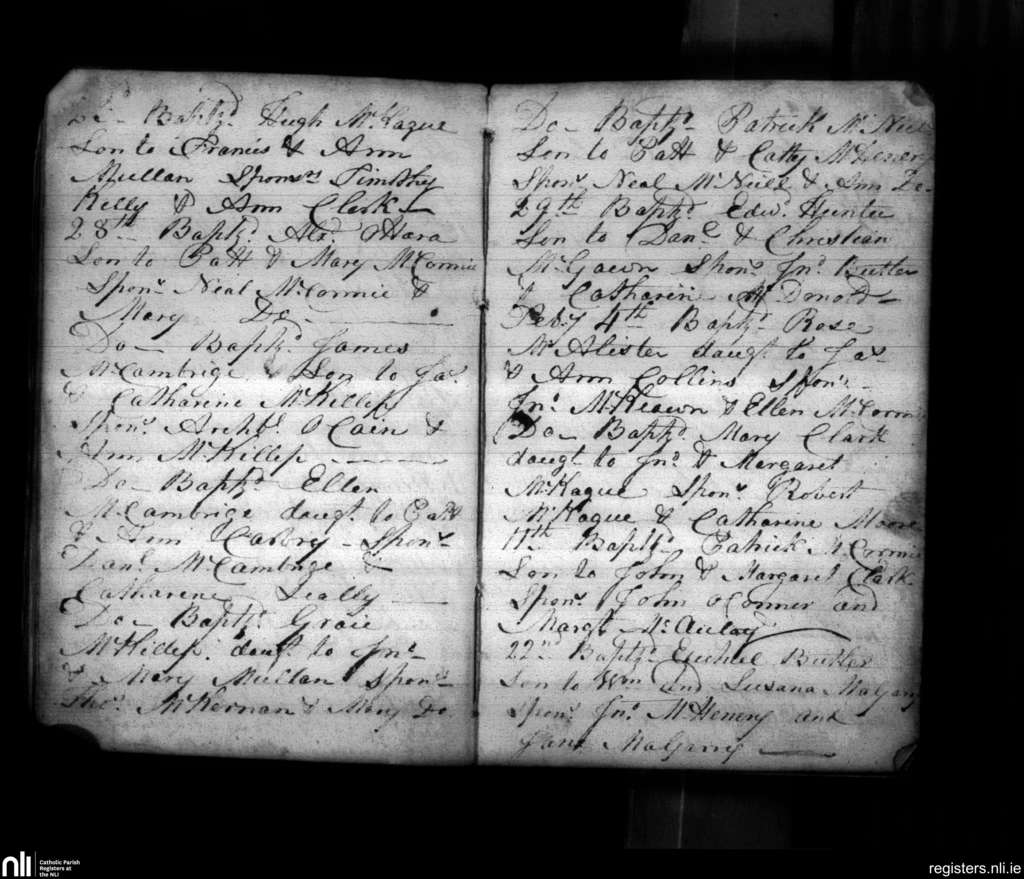 Do- Baptzd. Hugh McKague
Son to Francis & Ann
Mullan Sponsrs Timothy
Kelly & Ann Clark -
28th Baptzd. Alr. OHara
Son to Patt & Mary McCormic
Sponrs Neal McCormic &
Mary Do -
Do - Baptzd. James
McCambrige Son to Jas.
& Catharine McKillip
Sponrs Archbd. OCain &
Ann McKillip
Do - Baptzd Ellen
McCambrige daugt. to Patt
& Ann Carbry - Sponrs
Danl. McCambrige &
Catharine Scally
Do - Baptzd. Grace
McKillip. daugt. to Jno.
& Mary Mullan Sponrs
Thos. McKernan & Mary Do.
Do - Baptzd. Patrick McNeill
Son to Patt & Catty McHenery
Sponrs Neal McNeill & Ann Do-
29th Baptzd. Edwd. Hunter
Son to Danl. & Christian
McGawn Sponrs Jno. Butler
& Catharin McDonold -
Feby 4th Baptzd. Rose
McAlister daugt. to Jas.
& Ann Collins Sponrs -
Jno. McKeawn & Ellen McCormic
Do - Baptzd. Mary Clark
daugt. to Jno. & Margaret
McKague Sponrs Robert
McKague & Catharine Moore
11th Baptzd. Patrick McCormic
Son to John & Margaret Clark
Sponrs John OConner and
Margt McAulay
22nd Baptzd. Ezichiel Butler
Son to Wm and Susana MaGerry
Sponrs Jno. McHenery and
Jane MaGerry
nli
Catholic Parish
Registers at
the NLI
registers.nli.ie